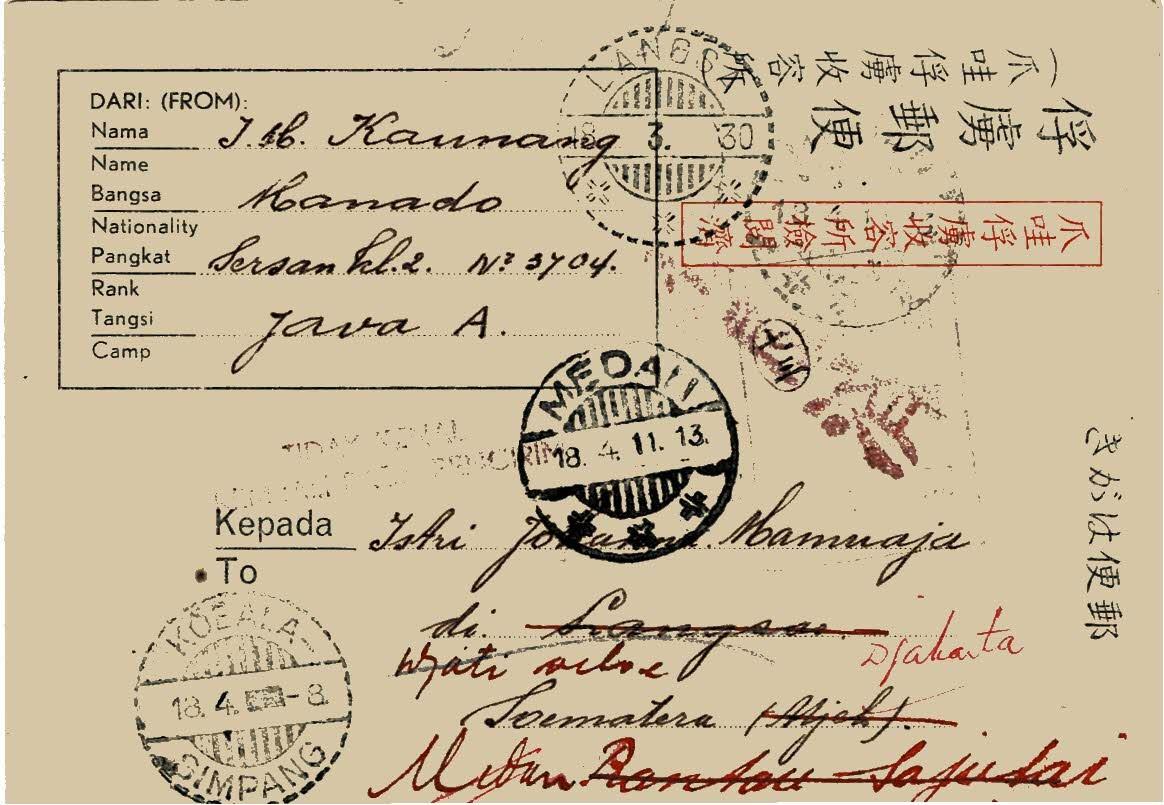 爪哇俘虜收容所
俘虜郵便
爪哇俘虜收容所檢閲濟
LANGSA
3. 30
DARI: (FROM):
Nama Kaunang
Name
Bangsa Manado
Nationality
Pangkat Sersan kl.2. No 3704.
Rank
Tangsi Java A.
Camp
MEDAN
18. 4. 11. 13.
TIDAK KENAL
郵便はがき
Kepada Istri Mamuaja
To
di. Langsa.
Djakarta
Soematera (Atjeh).
Medan Rantau
KOEALA
18. 4. -8.
SIMPANG